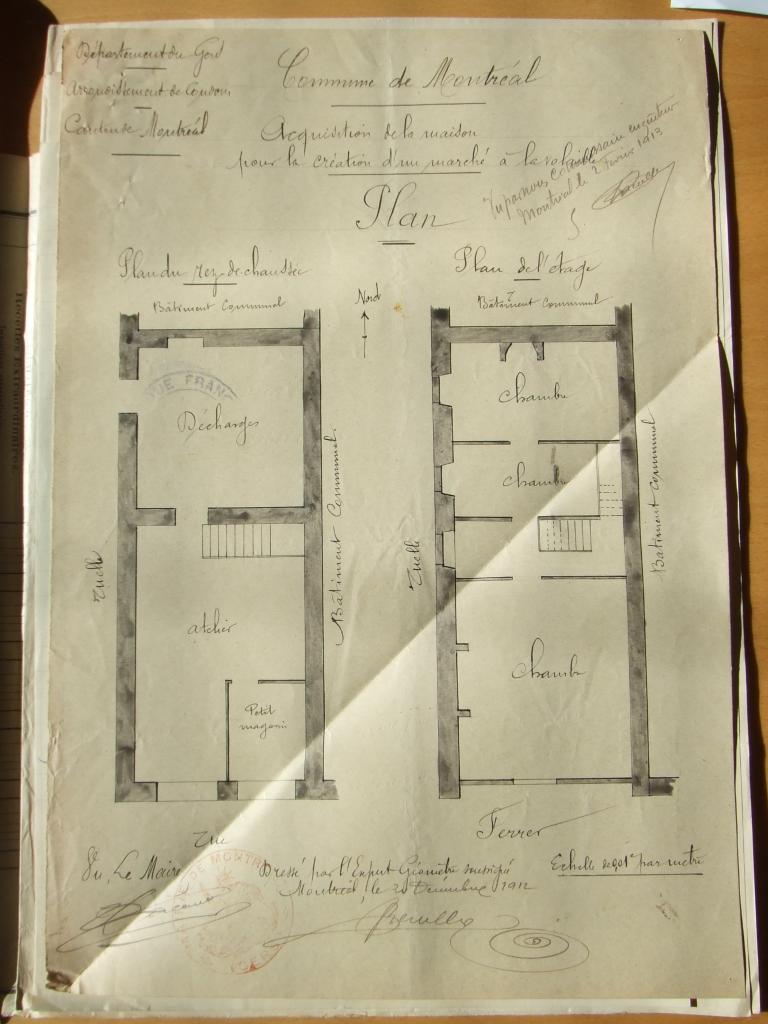 Département du Gers
Arrondissement de Condom
Canton de Montréal
Commune de Montréal
Acquisition de la maison
pour la création d'un marché à la volaille
Vu par nous Commissaire enquêteur
Montréal le 2 Février 1913
Plan
Plan du rez-de-chaussée
Bâtiment Communal
Nord
Plan de l'étage
Bâtiment Communal
UE FRANÇ
Décharges
Chambre
Chambre
Bâtiment Communal
Bâtiment Communal
Ruelle
Ruelle
atelier
Chambre
Petit
magasin
Rue
Ferrer
Vu, Le Maire
DE MONTR
Dressé par l'Expert Géomètre soussigné
Montréal, le 20 Décembre 1912
Echelle de 0,01c par mètre